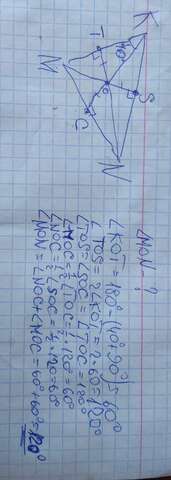 K
T
40°
M
O
S
C
N
∠MON ?
∠KOT = 180°-(40°+90°)=60°
∠TOS = 2∠KOT = 2·60=120°
∠TOS=∠SOC=∠TOC=120°
∠MOC=½∠TOC=½·120°=60°
∠NOC=½∠SOC=½·120=60°
∠MON=∠NOC+∠MOC=60°+60°=120°